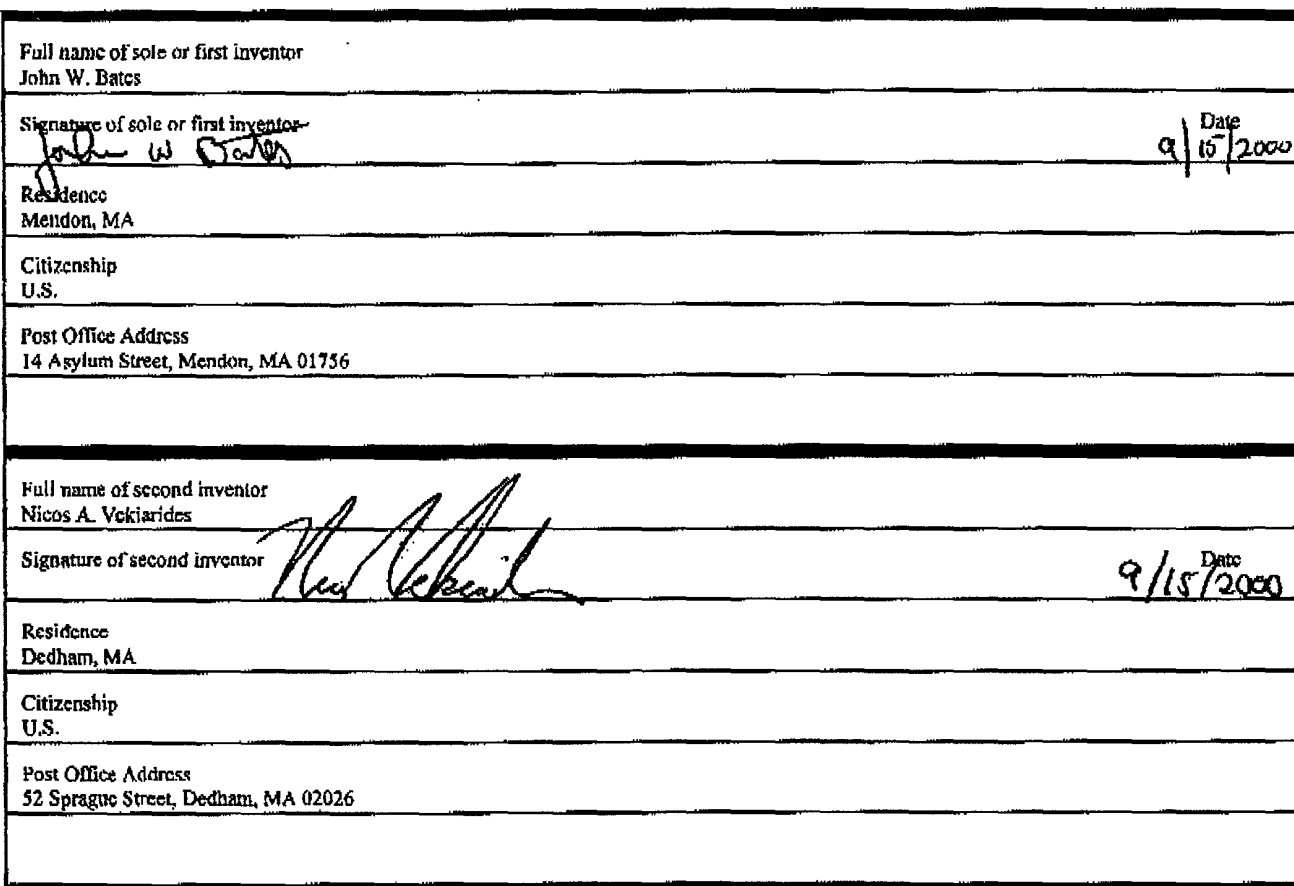 Full name of sole or first inventor
John W. Bates
Signature of sole or first inventor
John W Bates
Date
9/15/2000
Residence
Mendon, MA
Citizenship
U.S.
Post Office Address
14 Asylum Street, Mendon, MA 01756
Full name of second inventor
Nicos A. Vekiarides
Signature of second inventor
Date
9/15/2000
Residence
Dedham, MA
Citizenship
U.S.
Post Office Address
52 Sprague Street, Dedham, MA 02026